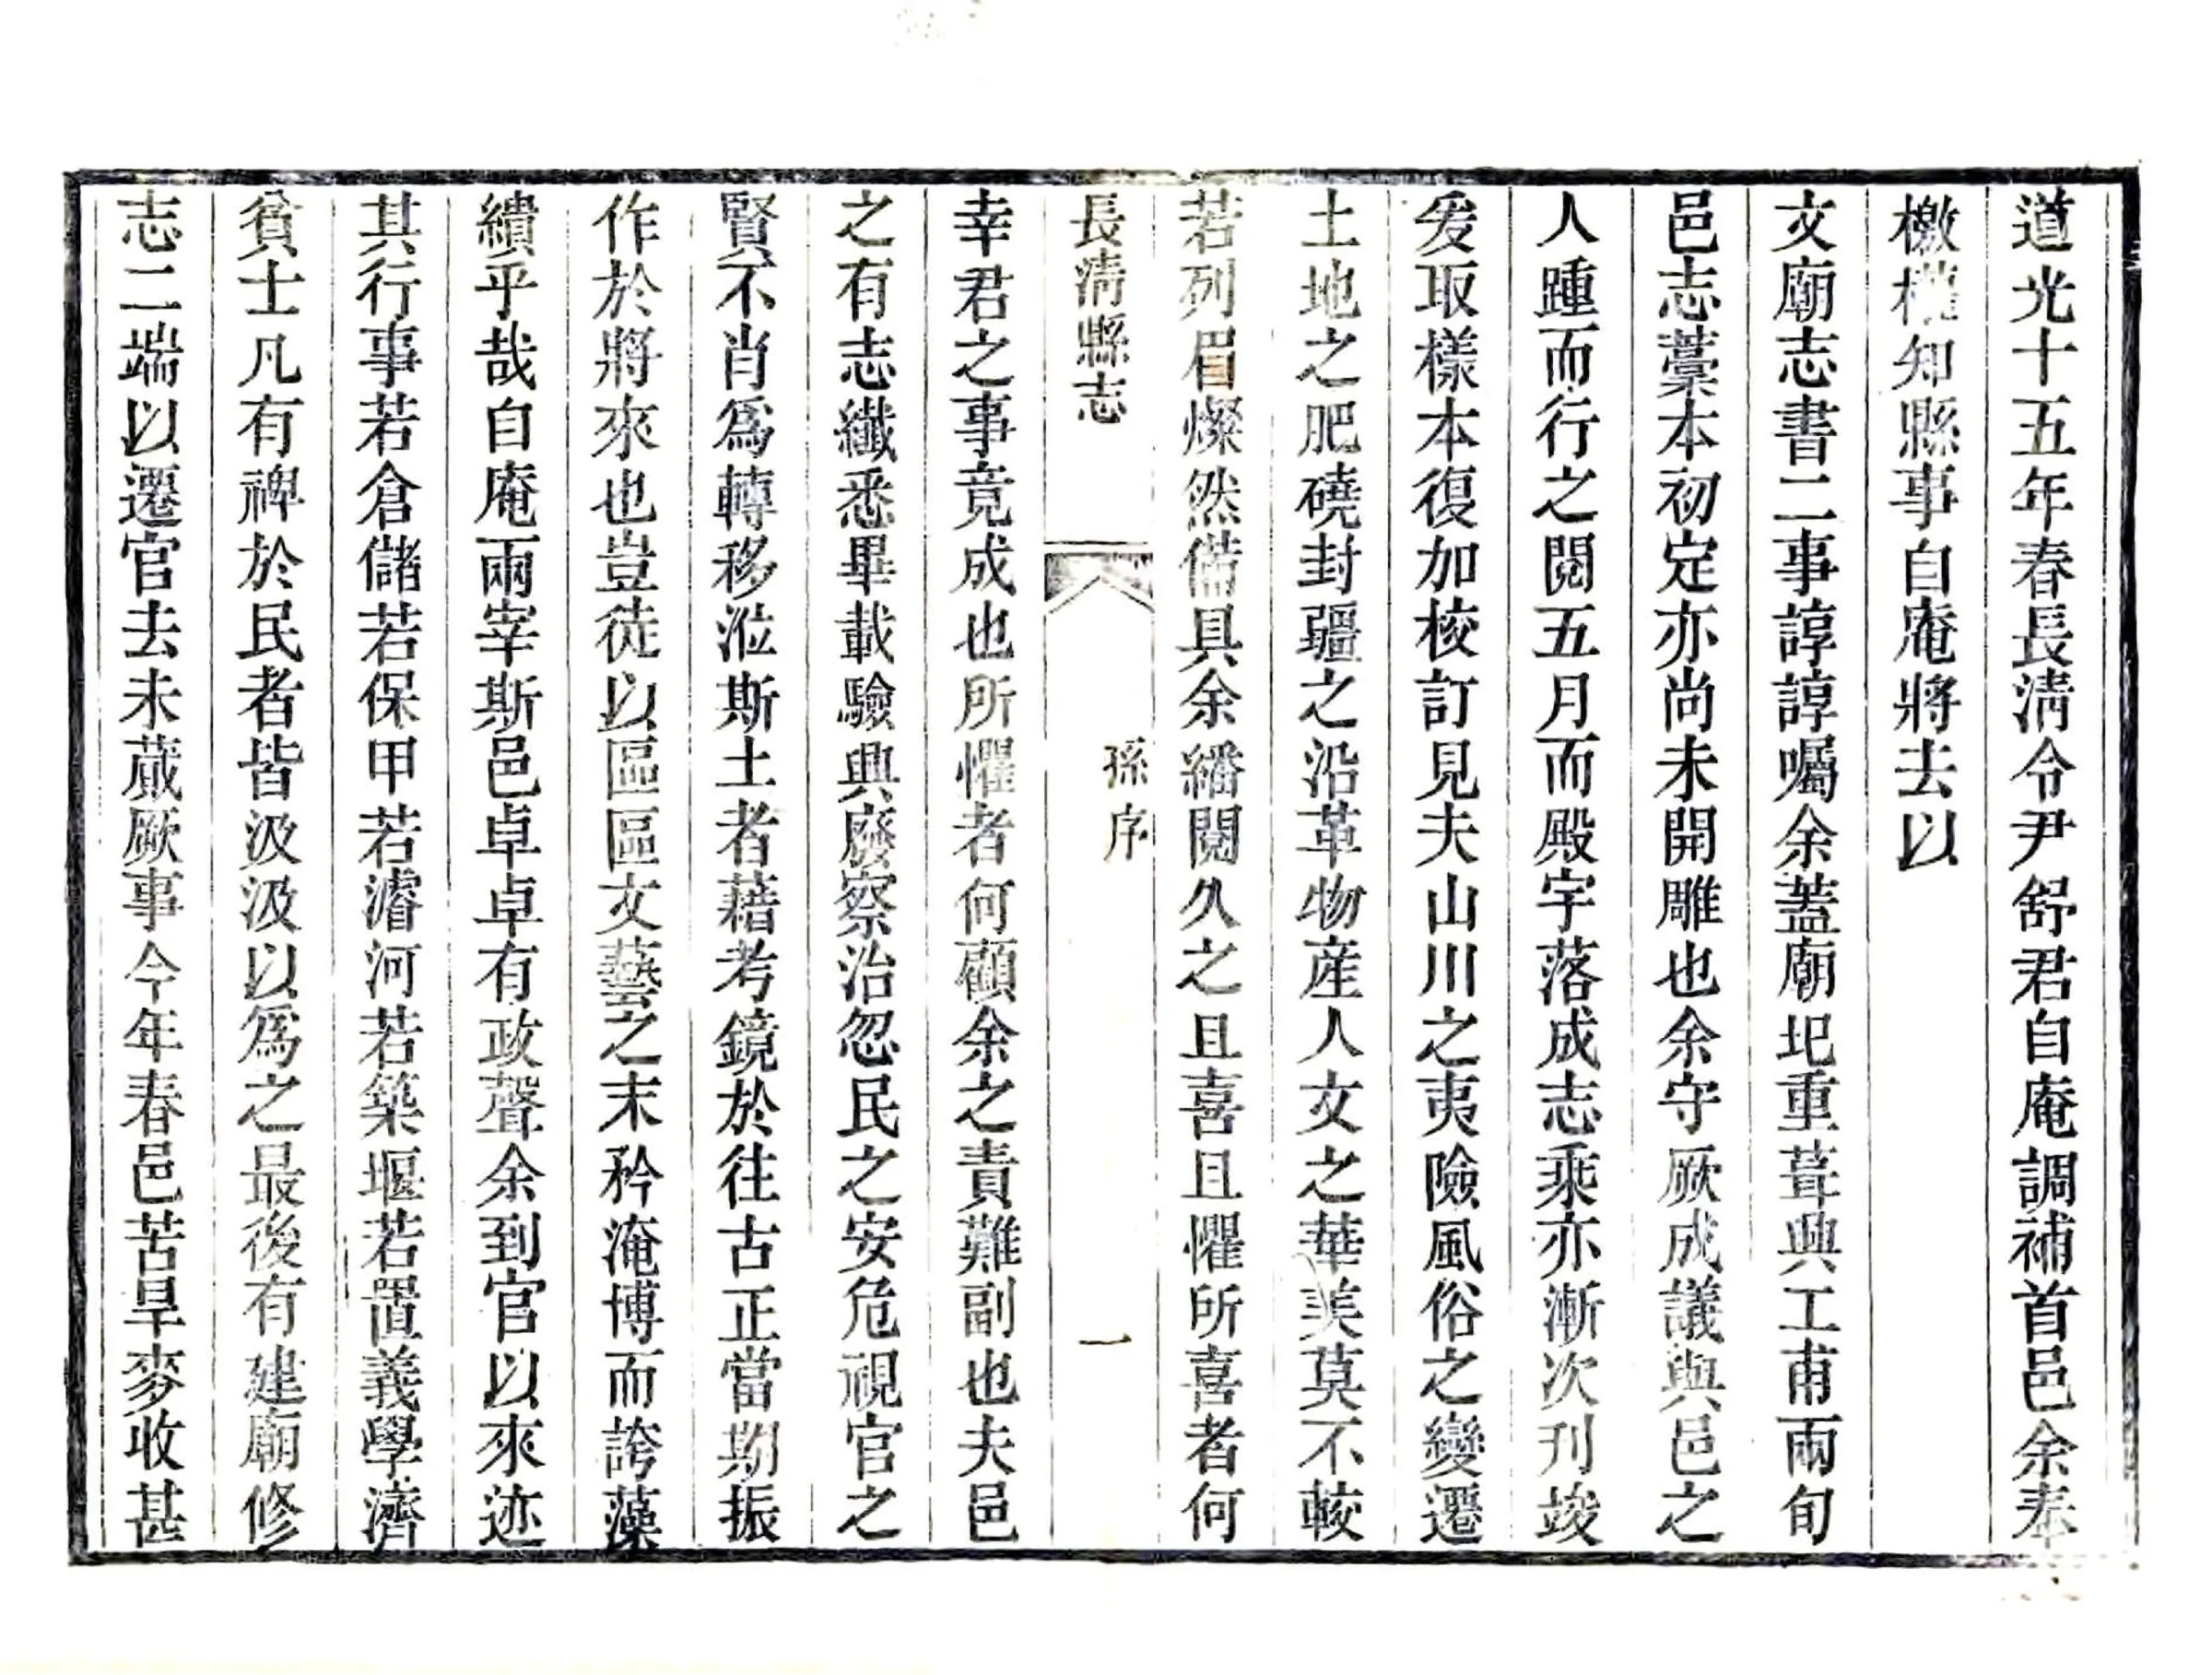 道光十五年春長淸令尹舒君自庵調補首邑余奉
檄權知縣事自庵將去以
文廟志書二事諄諄囑余蓋廟圯重葺興工甫兩旬
邑志藁本初定亦尚未開雕也余守厥成議與邑之
人踵而行之閱五月而殿宇落成志乘亦漸次刊竣
爰取樣本復加校訂見夫山川之夷險風俗之變遷
土地之肥磽封疆之沿革物産人文之華美莫不較
若列眉燦然備具余繙閱久之且喜且懼所喜者何
長淸縣志
孫序
一
幸君之事竟成也所懼者何顧余之責難副也夫邑
之有志纖悉畢載驗興廢察治忽民之安危視官之
賢不肖爲轉移涖斯土者藉考鏡於往古正當期振
作於將來也豈徒以區區文藝之末矜淹博而誇藻
繢乎哉自庵兩宰斯邑卓卓有政聲余到官以來迹
其行事若倉儲若保甲若濬河若築堰若置義學濟
貧士凡有裨於民者皆汲汲以爲之最後有建廟修
志二端以遷官去未蕆厥事今年春邑苦旱麥收甚